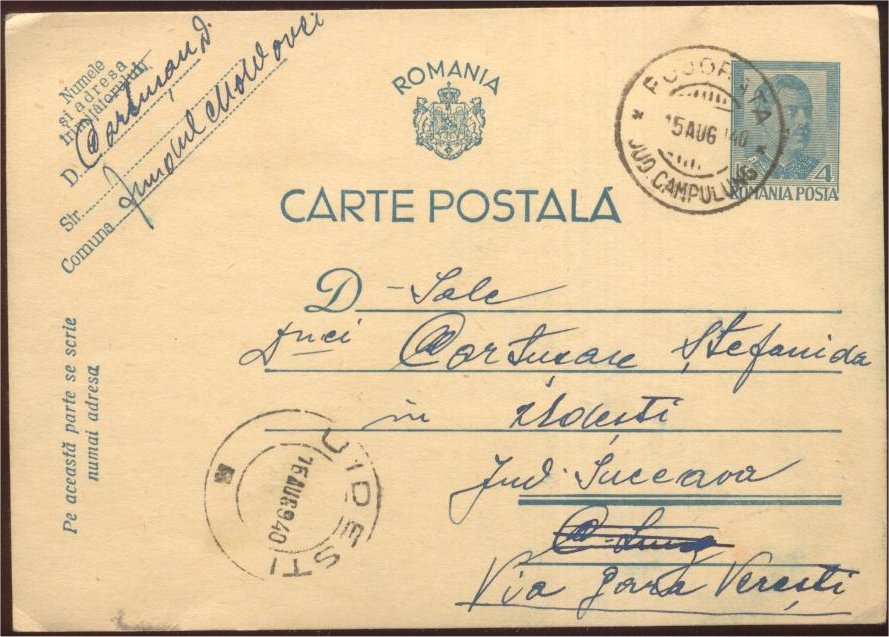 Numele
și adresa
trimițătorului
D. Cartușan D.
Str.
Comuna Fundul Moldovei
ROMANIA
CARTE POSTALĂ
POJORITA
15 AUG 940
JUD CAMPULUNG
4
ROMANIA POSTA
Pe această parte se scrie
numai adresa
D-Sale
Dnei Cartușan Ștefanida
în Udești
Jud. Suceava
Via gara Verești
UIDESTI
16 AUG 940